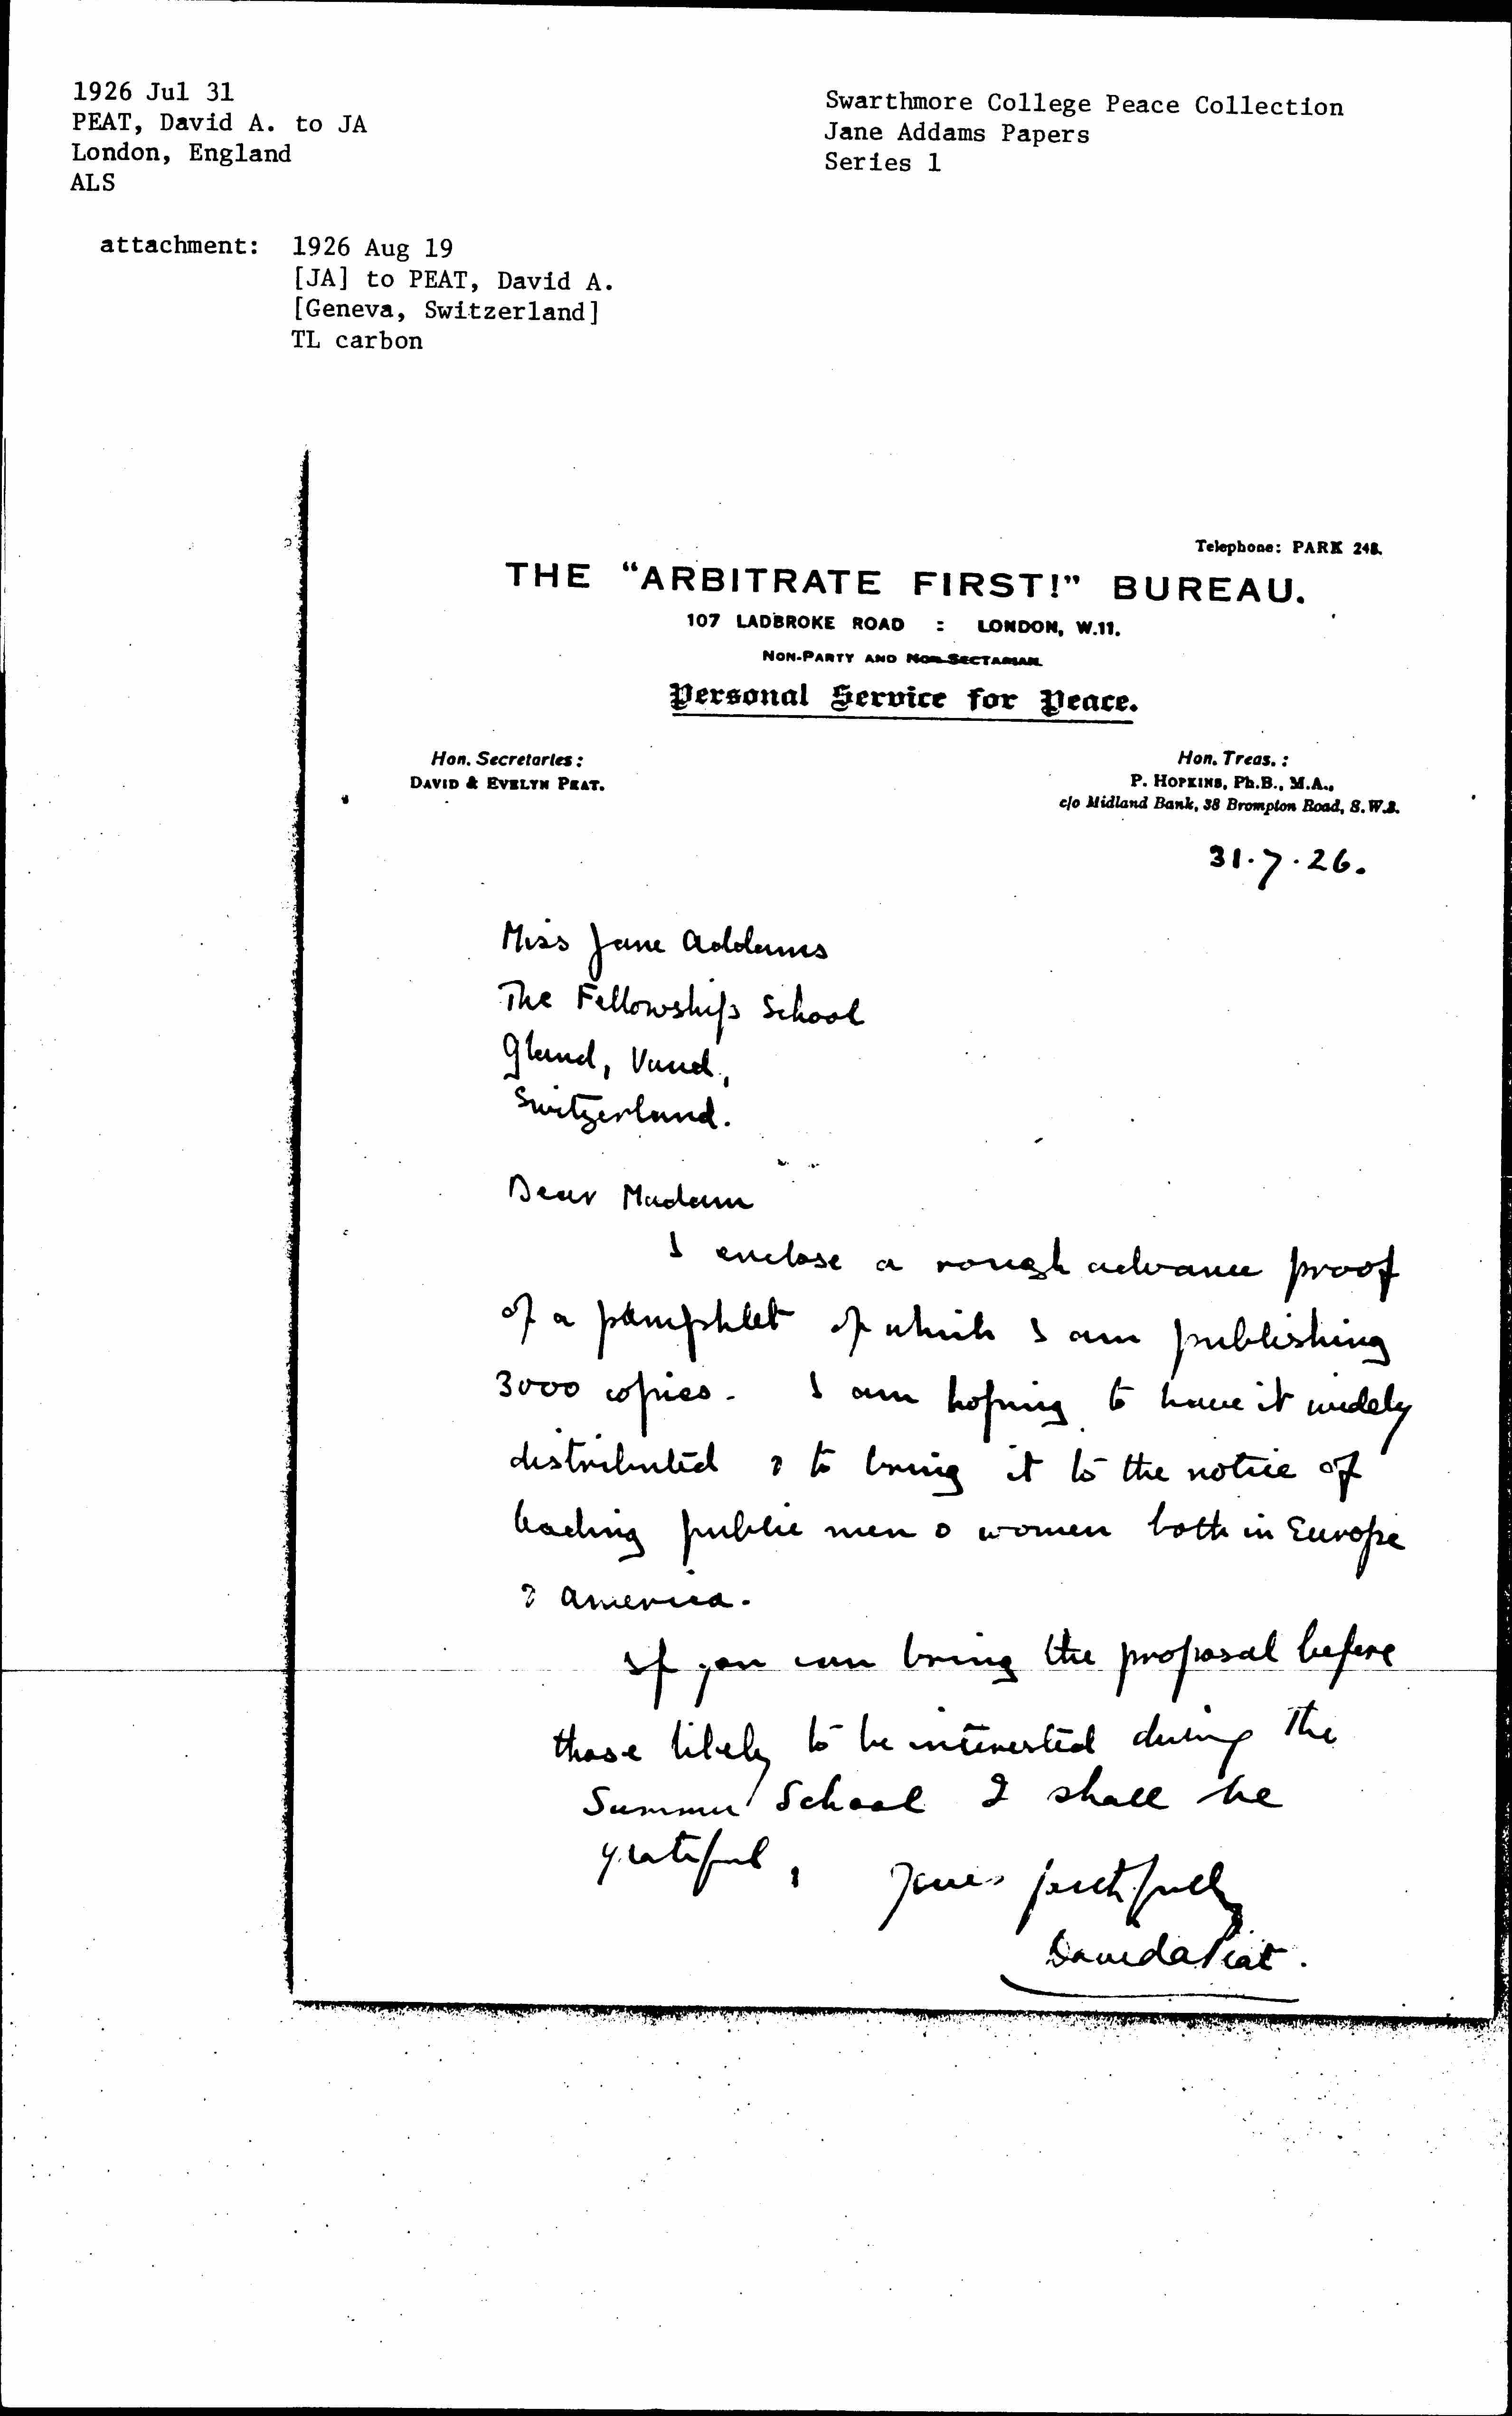 1926 Jul 31
PEAT, David A. to JA
London, England
ALS
Swarthmore College Peace Collection
Jane Addams Papers
Series 1
attachment: 1926 Aug 19
[JA] to PEAT, David A.
[Geneva, Switzerland]
TL carbon
Telephone: PARK 248.
THE "ARBITRATE FIRST!" BUREAU.
107 LADBROKE ROAD : LONDON, W.11.
NON-PARTY AND NON-SECTARIAN.
Personal Service for Peace.
Hon. Secretaries:
DAVID & EVELYN PEAT.
Hon. Treas.:
P. HOPKINS, Ph.B., M.A.,
c/o Midland Bank, 38 Brompton Road, S.W.3.
31.7.26.
Miss Jane Addams
The Fellowship School
Gland, Vaud,
Switzerland.
Dear Madam
I enclose a rough advance proof
of a pamphlet of which I am publishing
3000 copies. I am hoping to have it widely
distributed & to bring it to the notice of
leading public men & women both in Europe
& America.
If you can bring the proposal before
those likely to be interested during the
Summer School I shall be
grateful,
Yours faithfully
David A Peat.